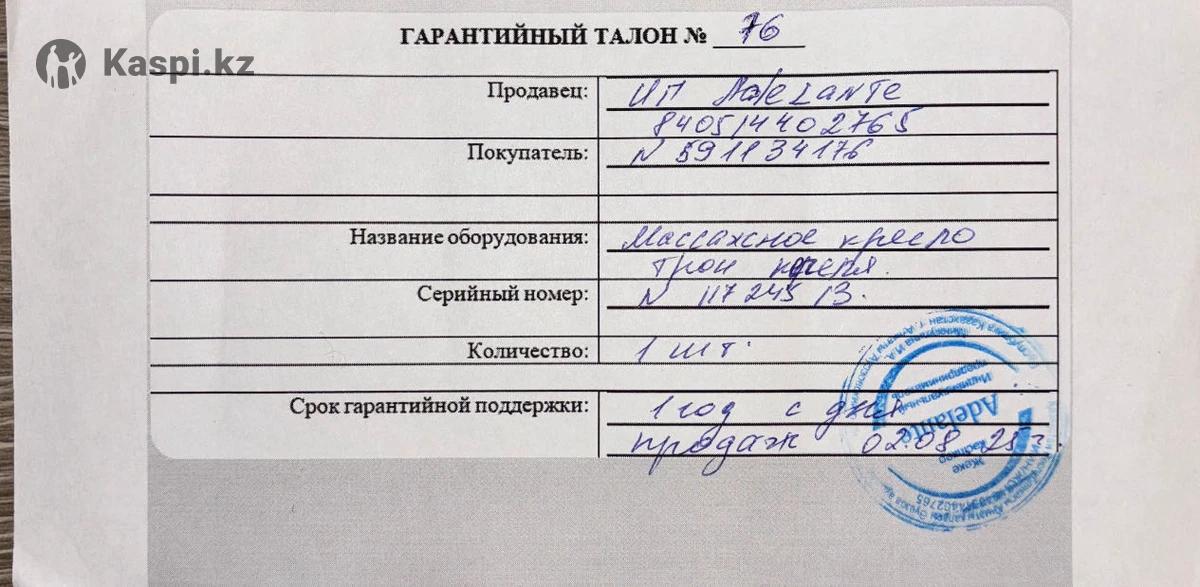 ГАРАНТИЙНЫЙ ТАЛОН № 76
Kaspi.kz
Продавец: ИП Adelante
840514402765
Покупатель: N 591134176
Название оборудования: Массажное кресло
трон
Серийный номер: N 11724513.
Количество: 1 шт.
Срок гарантийной поддержки: 1 год с дня
продаж 02.08.25г.
Республика Казахстан г. Алматы
Индивидуальный
предприниматель
Adelante
Жеке
кәсіпкер